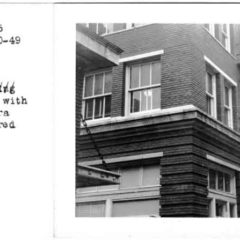 6
0-49
ing
with
ra
red